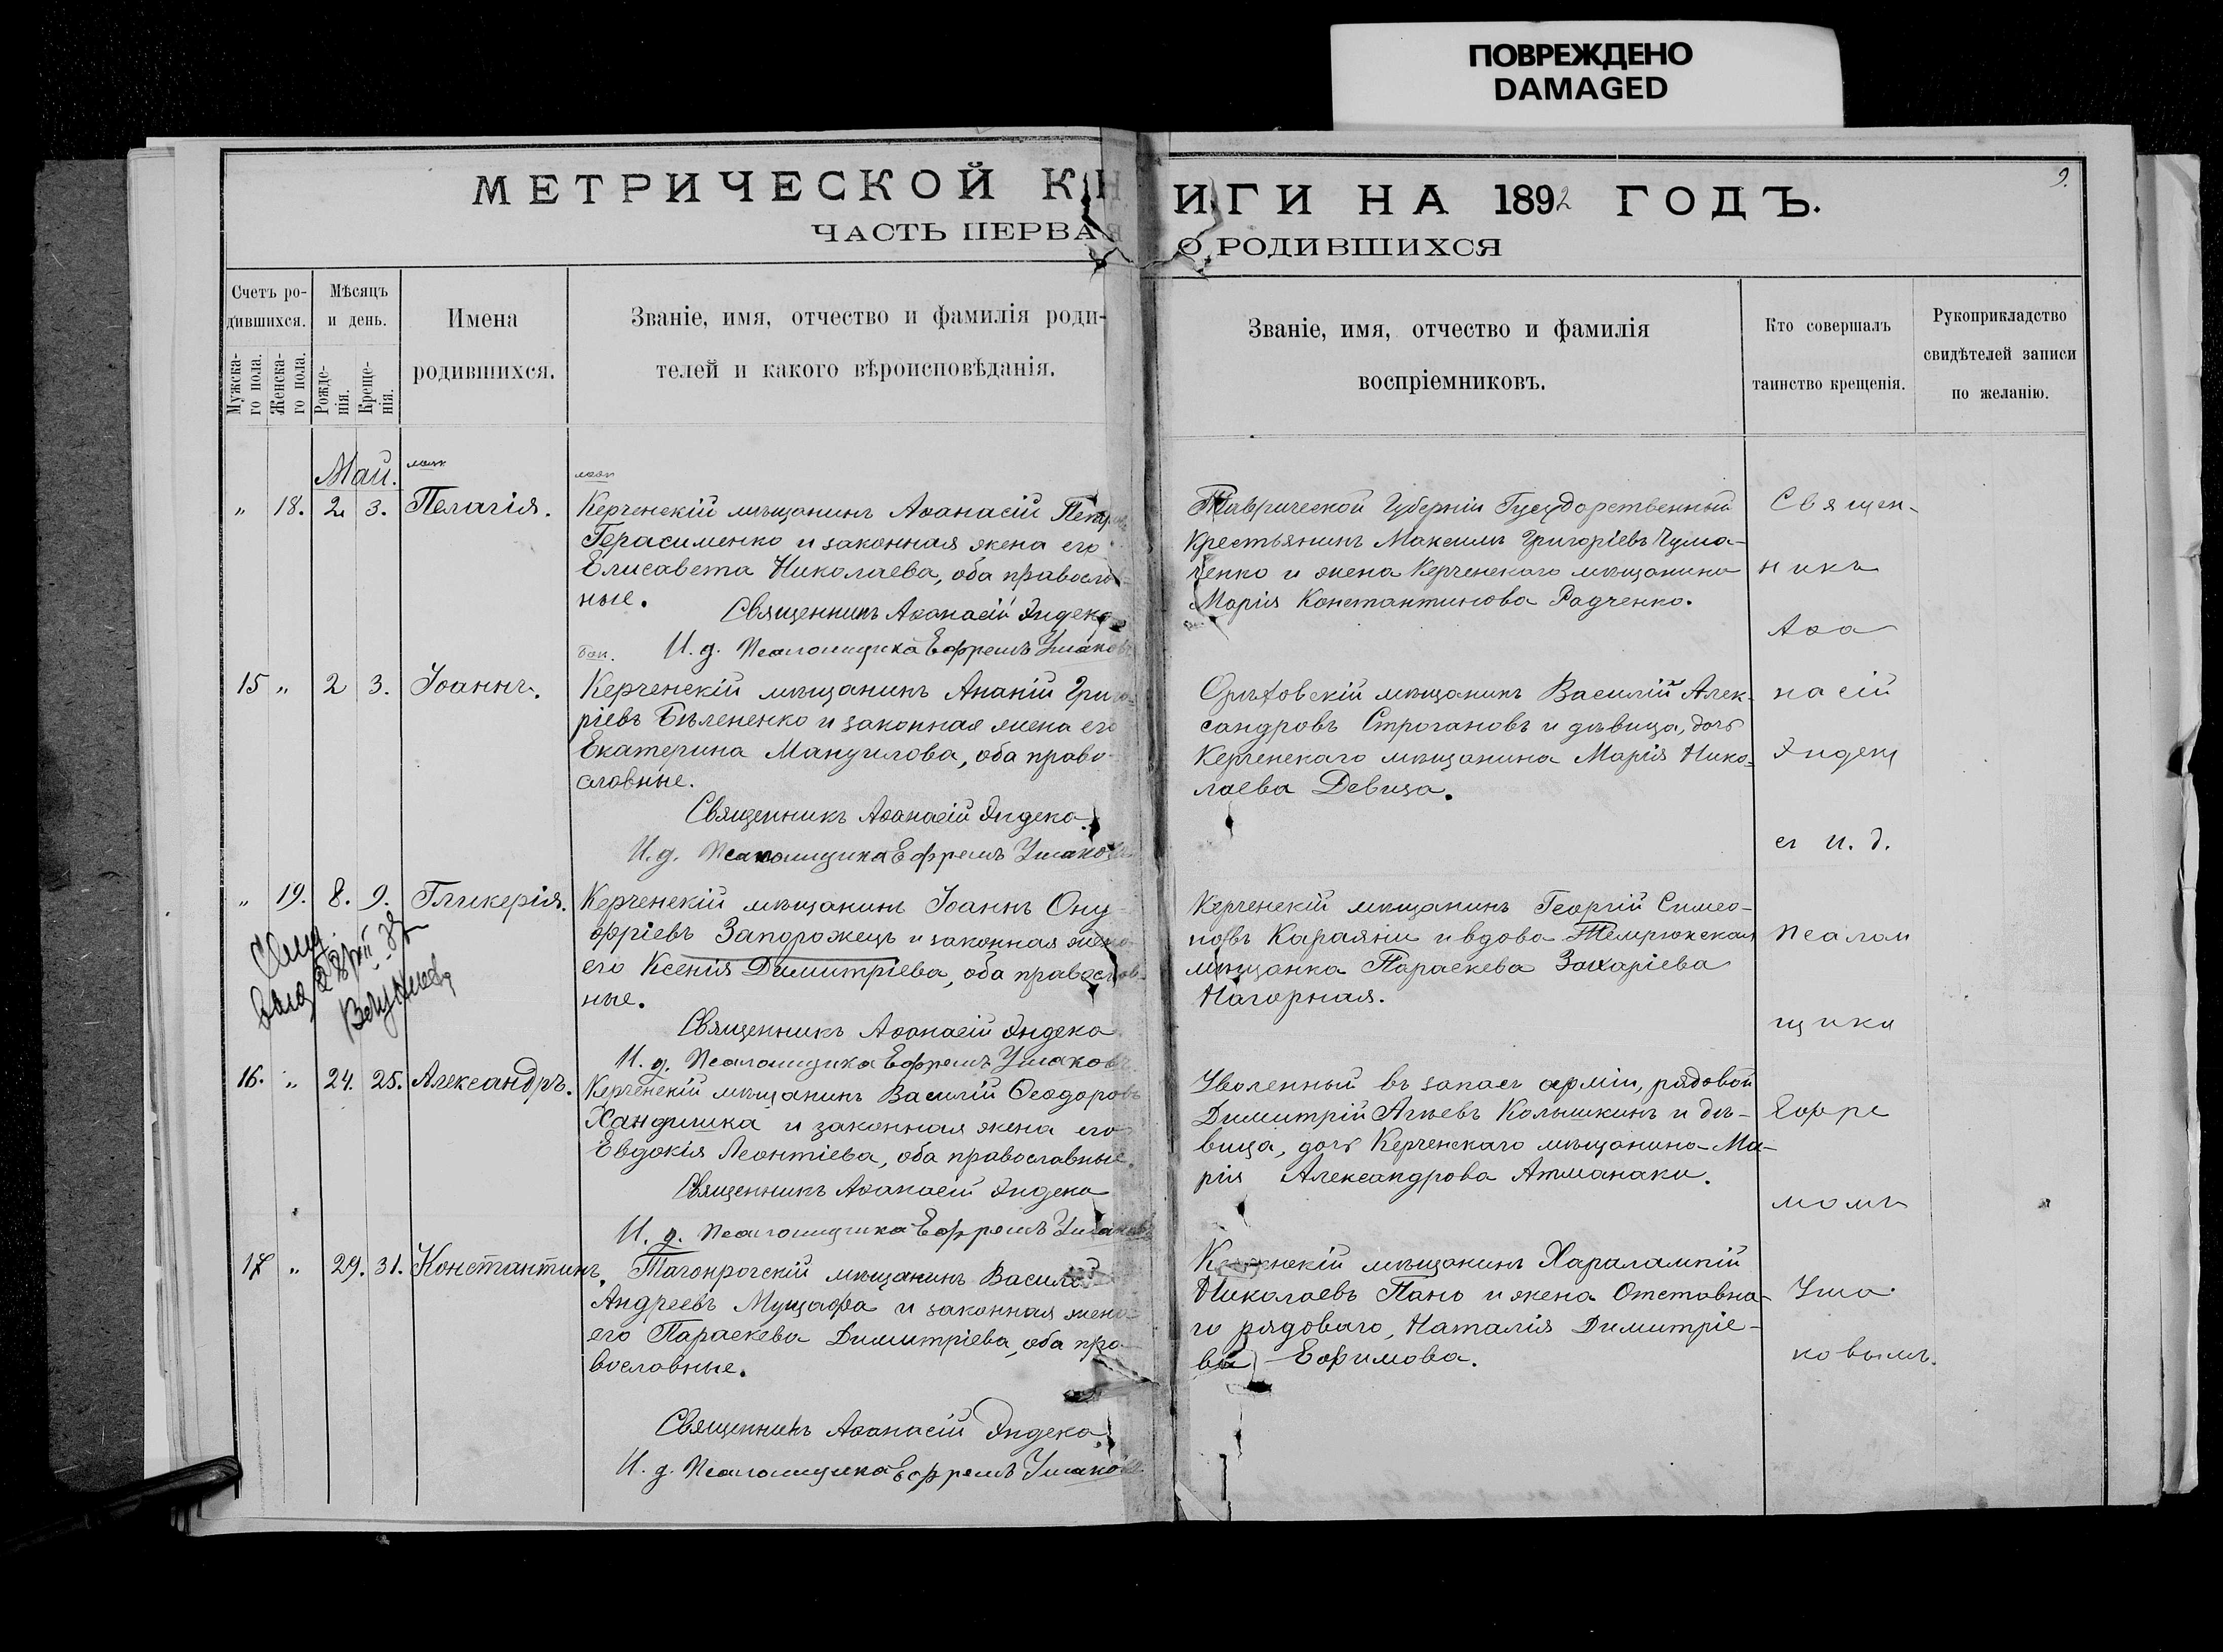 ПОВРЕЖДЕНО
DAMAGED
9.
МЕТРИЧЕСКОЙ КНИГИ НА 1892 ГОДЪ.
ЧАСТЬ ПЕРВАЯ О РОДИВШИХСЯ
Счетъ ро-
дившихся.
Мужска-
го пола.
Женска-
го пола.
Мѣсяцъ
и день.
Рожде-
нія.
Креще-
нія.
Имена
родившихся.
Званіе, имя, отчество и фамилія роди-
телей и какого вѣроисповѣданія.
Званіе, имя, отчество и фамилія
воспріемниковъ.
Кто совершалъ
таинство крещенія.
Рукоприкладство
свидѣтелей записи
по желанію.
Май.
" 18. 2. 3. Пелагія.
Керченскій мѣщанинъ Аѳанасій
Герасименко и законная жена его
Елисавета Николаева, оба православ-
ные.
Священникъ Аѳанасій Яндека
И. д. Псаломщика Ефремъ Ушаковъ
Таврической Губерніи Государственный
Крестьянинъ Максимъ Григоріевъ Чума-
ченко и жена Керченскаго мѣщанина
Марія Константинова Радченко.
15 " 2 3. Іоаннъ.
Керченскій мѣщанинъ Ананій Григо-
ріевъ Бѣлененко и законная жена его
Екатерина Мануилова, оба право-
славные.
Священникъ Аѳанасій Яндека
И. д. Псаломщика Ефремъ Ушаковъ
Орѣховскій мѣщанинъ Василій Алек-
сандровъ Строгановъ и дѣвица, дочь
Керченскаго мѣщанина Марія Нико-
лаева Девиза.
" 19. 8. 9. Гликерія.
Керченскій мѣщанинъ Іоаннъ Ону-
фріевъ Запорожецъ и законная жена
его Ксенія Димитріева, оба православ-
ные.
Священникъ Аѳанасій Яндека
И. д. Псаломщика Ефремъ Ушаковъ
Керченскій мѣщанинъ Георгій Симео-
новъ Караяни и вдова Темрюкская
мѣщанка Параскева Захаріева
Нагорная.
16. " 24. 25. Александръ.
Керченскій мѣщанинъ Василій Ѳеодоровъ
Хандишка и законная жена его
Евдокія Леонтіева, оба православные.
Священникъ Аѳанасій Яндека
И. д. Псаломщика Ефремъ Ушаковъ
Уволенный въ запасъ арміи, рядовой
Димитрій Агѣевъ Колышкинъ и дѣ-
вица, дочь Керченскаго мѣщанина Ма-
рія Александрова Атманаки.
17 " 29. 31. Константинъ.
Таганрогскій мѣщанинъ Василій
Андреевъ Мущафа и законная жена
его Параскева Димитріева, оба пра-
вославные.
Священникъ Аѳанасій Яндека
И. д. Псаломщика Ефремъ Ушаковъ
Керченскій мѣщанинъ Харалампій
Николаевъ Пано и жена Отставна-
го рядоваго, Наталія Димитріе-
ва Ефимова.
Священ-
никъ
Аѳа
насій
Яндек
съ И. д.
Псалом
щика
Ефре
момъ
Уша
ковымъ.